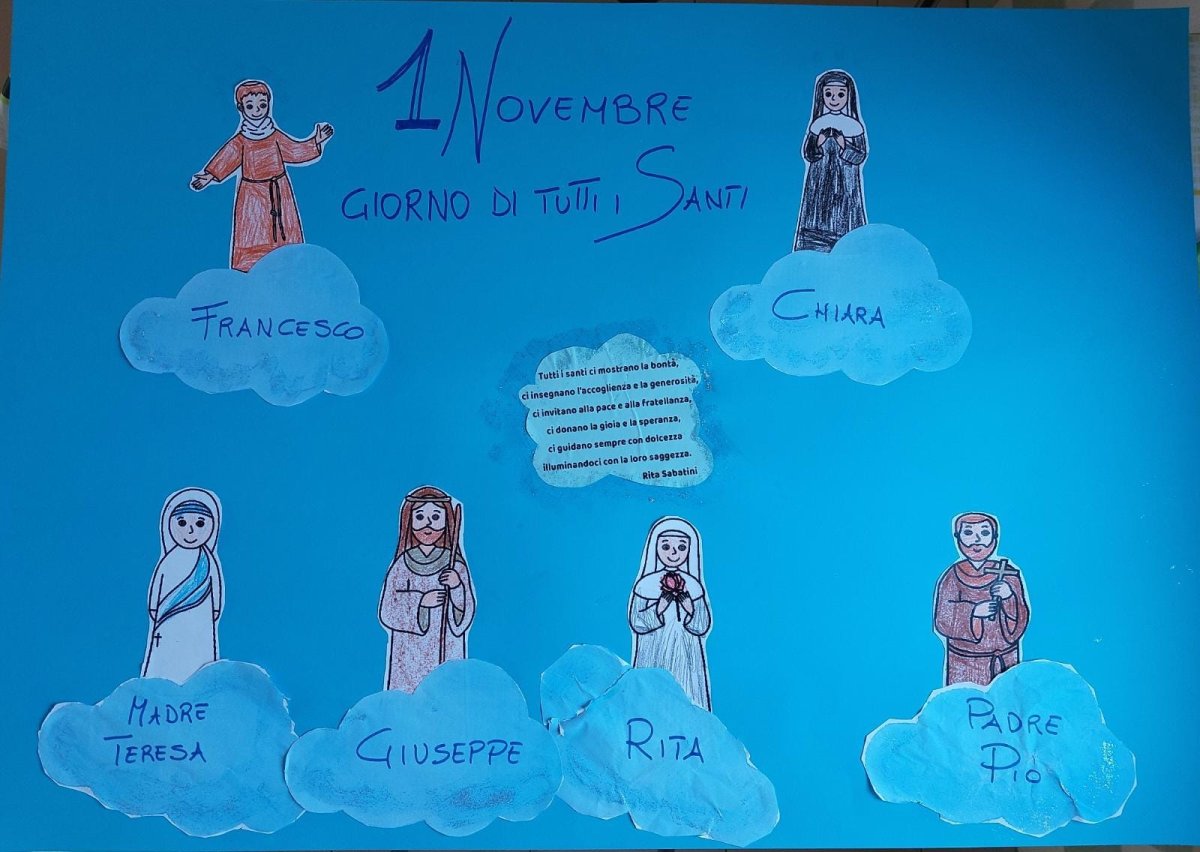 1 NOVEMBRE
GIORNO DI TUTTI I SANTI
FRANCESCO
CHIARA
Tutti i santi ci mostrano la bontà,
ci insegnano l'accoglienza e la generosità,
ci invitano alla pace e alla fratellanza,
ci donano la gioia e la speranza,
ci guidano sempre con dolcezza
illuminandoci con la loro saggezza.
Rita Sabatini
MADRE
TERESA
GIUSEPPE
RITA
PADRE
PIO